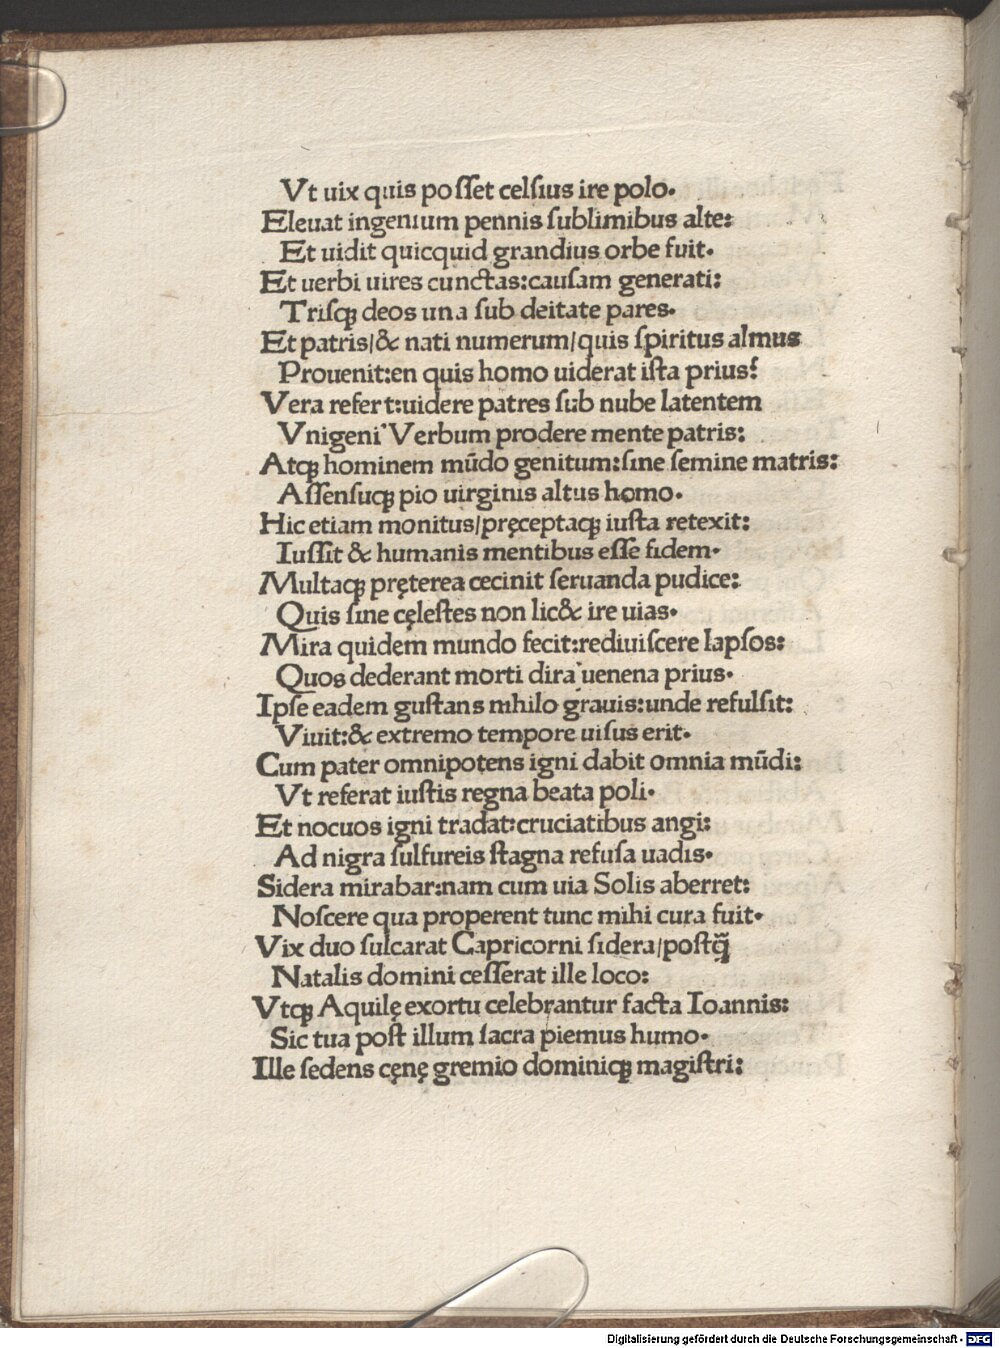 Vt uix quis poſſet celſius ire polo.
Eleuat ingenium pennis ſublimibus alte:
Et uidit quicquid grandius orbe fuit.
Et uerbi uires cunctas:cauſam generati:
Triſqꝫ deos una ſub deitate pares.
Et patris/& nati numerum/quis ſpiritus almus
Prouenit:en quis homo uiderat iſta prius?
Vera refert:uidere patres ſub nube latentem
Vnigeni'Verbum prodere mente patris:
Atqꝫ hominem mūdo genitum:ſine ſemine matris:
Aſſenſuqꝫ pio uirginis altus homo.
Hic etiam monitus/pręceptaqꝫ iuſta retexit:
Iuſſit & humanis mentibus eſſe fidem.
Multaqꝫ pręterea cecinit ſeruanda pudice:
Quis ſine cęleſtes non lic& ire uias.
Mira quidem mundo fecit:rediuiſcere lapſos:
Quos dederant morti dira'uenena prius.
Ipſe eadem guſtans nihilo grauis:unde refulſit:
Viuit:& extremo tempore uiſus erit.
Cum pater omnipotens igni dabit omnia mūdi:
Vt referat iuſtis regna beata poli.
Et nocuos igni tradat:cruciatibus angi:
Ad nigra ſulfureis ſtagna refuſa uadis.
Sidera mirabar:nam cum uia Solis aberret:
Noſcere qua properent tunc mihi cura fuit.
Vix duo ſulcarat Capricorni ſidera/poſtqꝫ̄
Natalis domini ceſſerat ille loco:
Vtqꝫ Aquilę exortu celebrantur facta Ioannis:
Sic tua poſt illum ſacra piemus humo.
Ille ſedens cęnę gremio dominiqꝫ magiſtri:
Digitalisierung gefördert durch die Deutsche Forschungsgemeinschaft - DFG